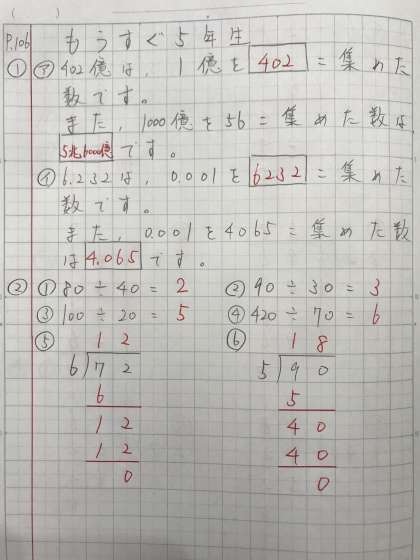 P.106 もうすぐ5年生
① ㋐ 402億は、1億を 402 こ集めた
数です。
また、1000億を56こ集めた数は
5兆6000億 です。
㋑ 6.232は、0.001を 6232 こ集めた
数です。
また、0.001を4065こ集めた数
は 4.065 です。
② ① 80÷40=2 ② 90÷30=3
③ 100÷20=5 ④ 420÷70=6
⑤ 12 ⑥ 18
6)72 5)90
6 5
12 40
12 40
0 0